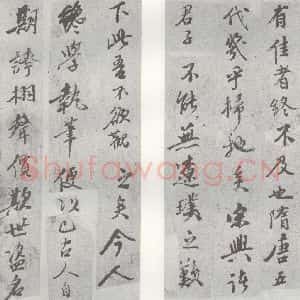 有佳者終不及也隋唐五
代幾乎掃地矣宋興諸
君子不能無遺璞之歎
下此吾不欲觀之矣今人
纔學執筆便以已古人自
期誇相聲價欺世盜名
Shufawang.CN